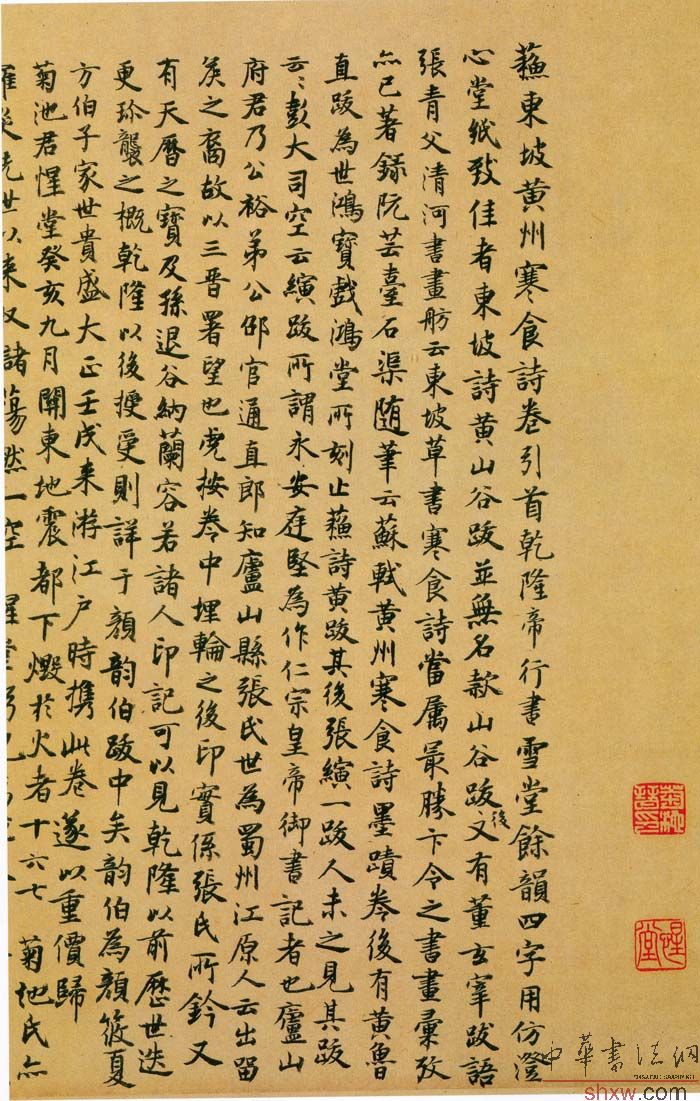 蘇東坡黃州寒食詩卷引首乾隆帝行書雪堂餘韻四字用仿澄
心堂紙致佳者東坡詩黃山谷跋並無名款山谷跋後又有董玄宰跋語
張青父清河書畫舫云東坡草書寒食詩當屬最勝卞令之書畫彙攷
亦已著錄阮芸臺石渠随筆云蘇軾黃州寒食詩墨蹟卷後有黃魯
直跋為世鴻寶戲鴻堂所刻止蘇詩黃跋其後張縯一跋人未之見其跋
云々彭大司空云縯跋所謂永安庭堅為作仁宗皇帝御書記者也廬山
府君乃公裕弟公邵官通直郎知廬山縣張氏世為蜀州江原人云出留
矦之裔故以三晋署望也虎按卷中埋輪之後印實係張氏所鈐又
有天曆之寶及孫退谷納蘭容若諸人印記可以見乾隆以前歷世迭
更珎襲之概乾隆以後授受則詳于顏韵伯跋中矣韵伯為顏筱夏
方伯子家世貴盛大正壬戌来游江戶時携此卷遂以重價歸
菊池君惺堂癸亥九月關東地震都下燬於火者十六七菊池氏亦
罹災先世以来收諸蕩然一空惺堂
惺堂
中華書法網
shxw.com